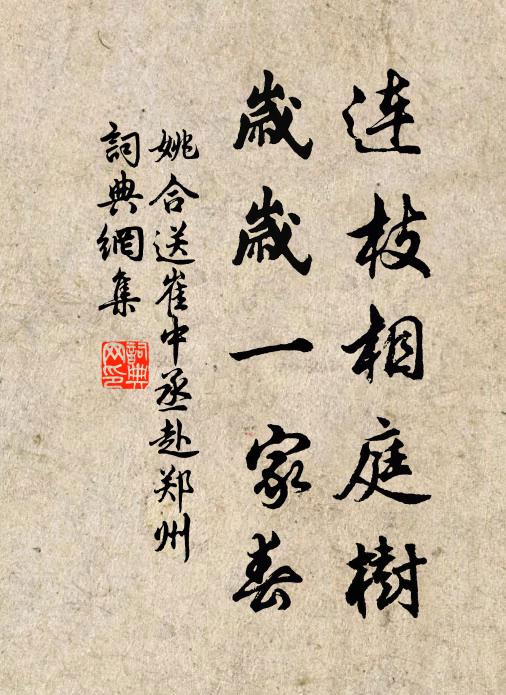 连枝相庭樹
歲歲一家春
姚合送崔中丞赴郑州
詞典網集
詞典网印